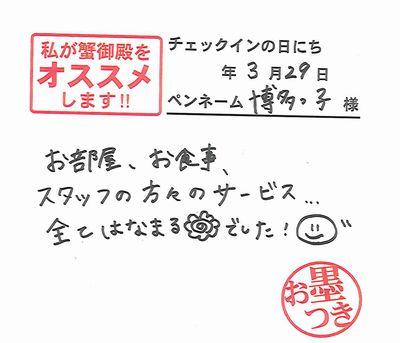 私が蟹御殿を
オススメ
します!!
チェックインの日にち
年 3 月 29 日
ペンネーム 博多っ子 様
お部屋、お食事、
スタッフの方々のサービス...
全てはなまるでした!
お墨つき